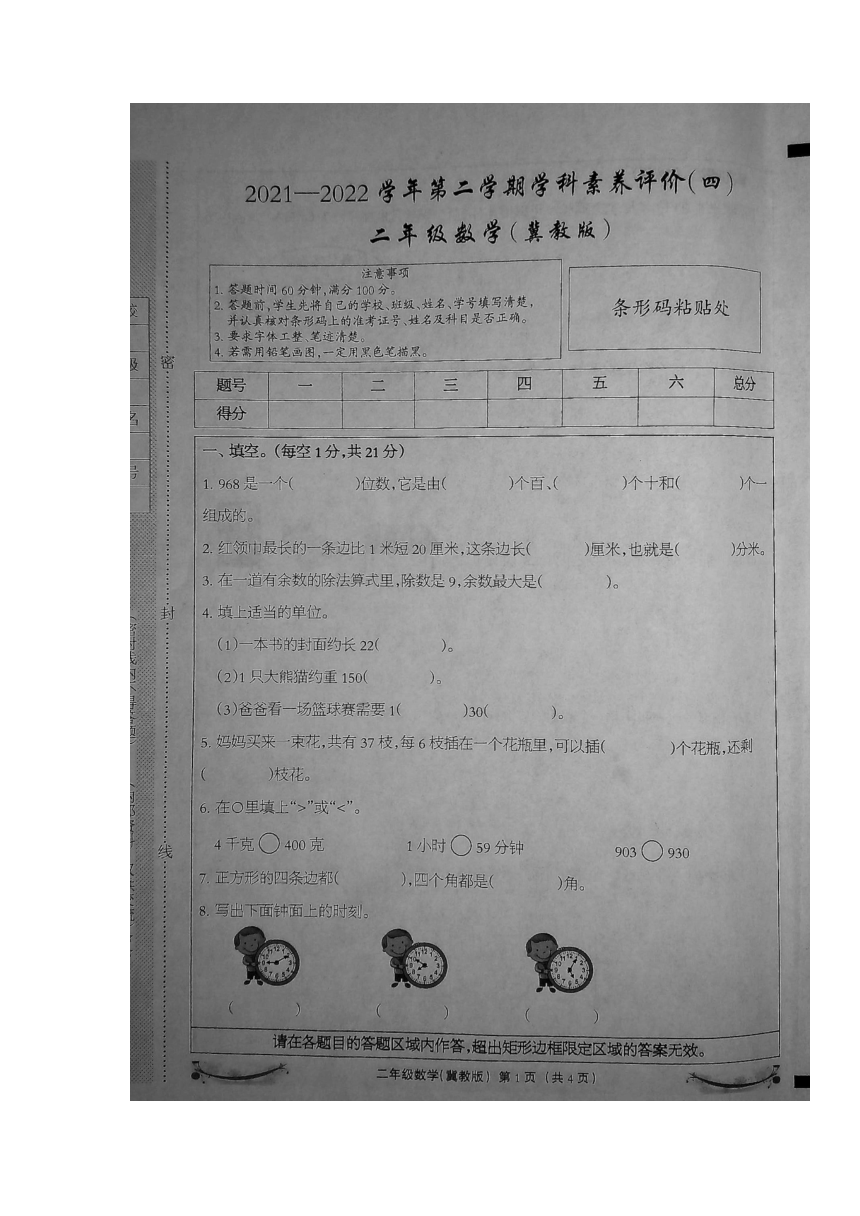 2021—2022 学年第二学期学科素养评价(四)
二年级数学(冀教版)
注意事项
1. 答题时间 60 分钟,满分 100 分。
2. 答题前,学生先将自己的学校、班级、姓名、学号填写清楚,
并认真核对条形码上的准考证号、姓名及科目是否正确。
3. 要求字体工整、笔迹清楚。
4. 若需用铅笔画图,一定用黑色笔描黑。
条形码粘贴处
题号 一 二 三 四 五 六 总分
得分
一、填空。(每空 1 分,共 21 分)
1. 968 是一个( )位数,它是由( )个百、( )个十和( )个一
组成的。
2. 红领巾最长的一条边比 1 米短 20 厘米,这条边长( )厘米,也就是( )分米。
3. 在一道有余数的除法算式里,除数是 9,余数最大是( )。
4. 填上适当的单位。
(1)一本书的封面约长 22( )。
(2)1 只大熊猫约重 150( )。
(3)爸爸看一场篮球赛需要 1( )30( )。
5. 妈妈买来一束花,共有 37 枝,每 6 枝插在一个花瓶里,可以插( )个花瓶,还剩
( )枝花。
6. 在○里填上“>”或“<”。
4 千克 ○ 400 克 1 小时 ○ 59 分钟 903 ○ 930
7. 正方形的四条边都( ),四个角都是( )角。
8. 写出下面钟面上的时刻。
( ) ( ) ( )
请在各题目的答题区域内作答,超出矩形边框限定区域的答案无效。
二年级数学(冀教版) 第 1 页 (共 4 页)
密
封
线